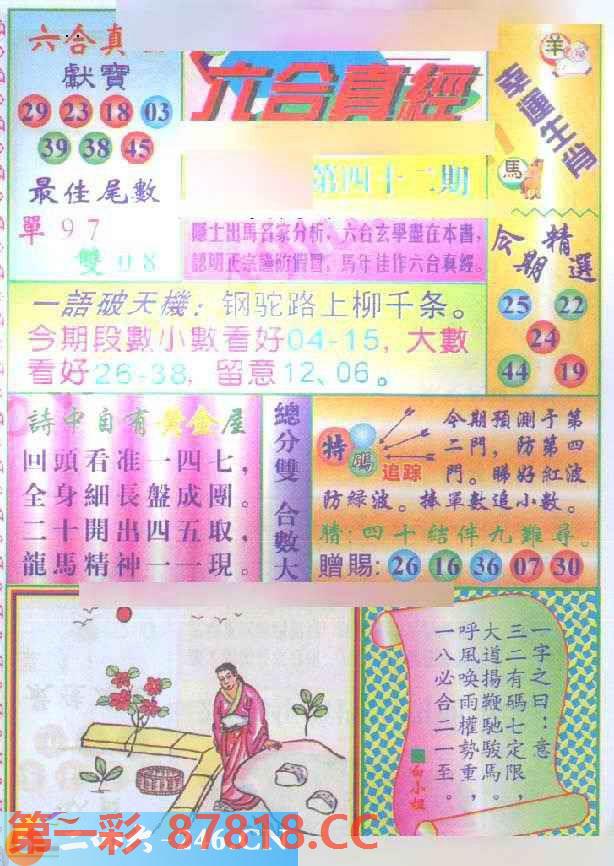 六合真
獻寶
29 23 18 03
39 38 45
最佳尾數
單 9 7
雙 0 8
六合真經
第四十二期
隱士出馬名家分析，六合玄學盡在本書，
認明正宗謹防假冒，馬年佳作六合真經。
羊
幸運生肖
馬
今期精選
25 22
24
44 19
一語破天機：钢驼路上柳千条。
今期段數小數看好04-15，大數
看好26-38，留意12、06。
詩中自有黃金屋
回頭看准一四七，
全身細長盤成團。
二十開出四五取，
龍馬精神一一現。
總分雙 合數大
特碼
追踪
今期預測予第
二門，防第四
門。睇好紅波
防綠波。捧單數追小數。
猜：四十结伴九難尋。
贈賜：26 16 36 07 30
一字之曰：意
三二有碼七定限，
大道揚鞭馳駿馬。
呼風喚雨權勢重，
一八必合二一至。
白小姐
第一彩.87818.CC
246.CN